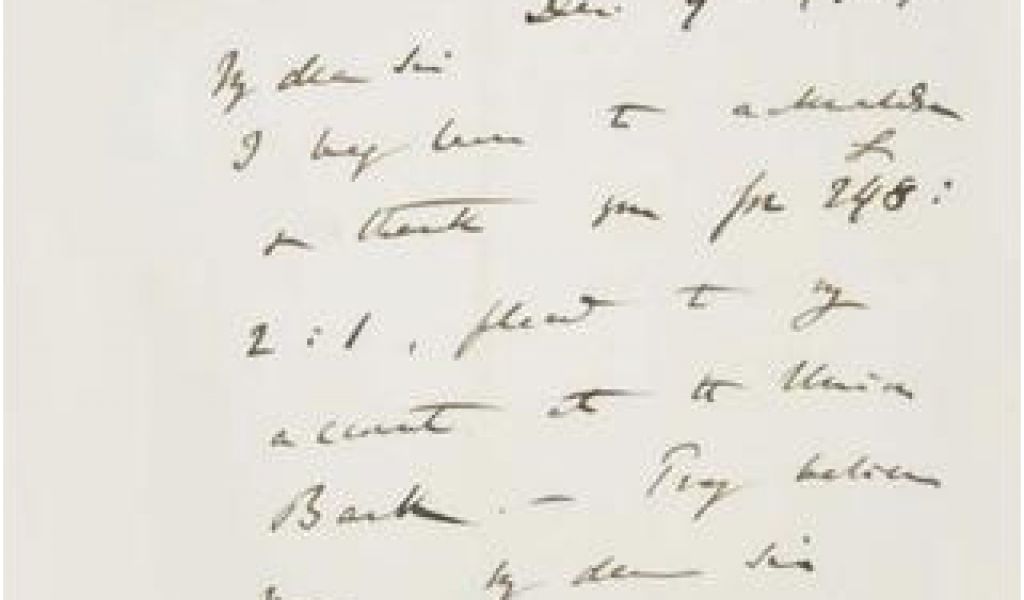 Dec. 9
My dear Sir
I beg leave to acknowledge
& thank you for £ 248 :
2 : 1 , placed to my
account at the Union
Bank . — Pray believe
my dear Sir